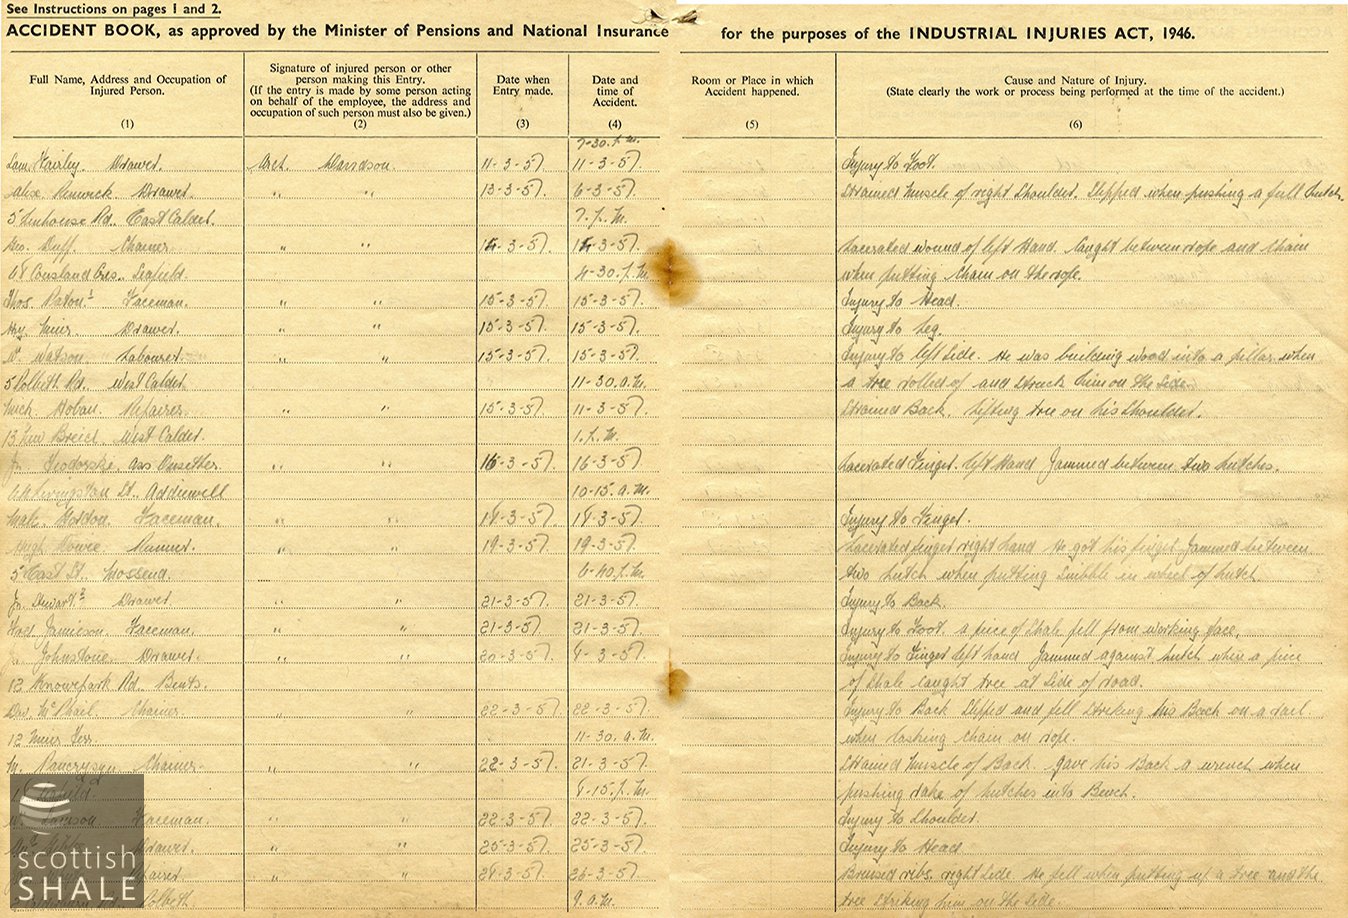 See Instructions on pages 1 and 2.
ACCIDENT BOOK, as approved by the Minister of Pensions and National Insurance for the purposes of the INDUSTRIAL INJURIES ACT, 1946.
Full Name, Address and Occupation of Injured Person. (1)
Signature of injured person or other person making this Entry. (If the entry is made by some person acting on behalf of the employee, the address and occupation of such person must also be given.) (2)
Date when Entry made. (3)
Date and time of Accident. (4)
Room or Place in which Accident happened. (5)
Cause and Nature of Injury. (State clearly the work or process being performed at the time of the accident.) (6)
7-30. P.M.
Sam Fairley. Drawer. Arch. Davidson. 11-3-57. 11-3-57. Injury to Foot.
Alex Renwick Drawer. " " 13-3-57. 6-3-57. Strained Muscle of right Shoulder. Slipped when pushing a full hutch.
5 Limhouse Rd. East Calder. 7. P.M.
Geo. Duff. Chainer " " 14-3-57. 14-3-57. Lacerated wound of left Hand. Caught between rope and chain
68 Cousland Cres. Seafield. 4-30. P.M. when putting chain on the rope.
Thos. Paton Faceman. " " 15-3-57. 15-3-57. Injury to Head.
Hry Muir Drawer. " " 15-3-57. 15-3-57. Injury to Leg.
W. Watson Labourer. " " 15-3-57. 15-3-57. Injury to left Side. He was building wood into a pillar when
5 Polbeth Rd. West Calder. 11-30. a.M. a tree rolled of and struck him on the Side.
Mich. Hoban. Repairer. " " 15-3-57. 11-3-57. Strained Back. Lifting tree on his Shoulder.
13 Breich. West Calder. 1. P.M.
Jn. Ass Onsetter. " " 16-3-57. 16-3-57. Lacerated Finger left Hand Jammed between two hutches.
Livingston St. Addiewell 10-15. a.M.
Gordon. Faceman. " " 18-3-57. 18-3-57. Injury to Finger.
Hugh Howie Runner. " " 19-3-57. 19-3-57. Lacerated finger right hand He got his finger Jammed between
5 East St. Mossend. 6-40. P.M. two hutch when putting Snibble in wheel of hutch.
Jn. Drawer. " " 21-3-57. 21-3-57. Injury to Back.
Jamieson. Faceman. " " 21-3-57. 21-3-57. Injury to Foot. a piece of Shale fell from working face.
Johnstone Drawer. " " 20-3-57. 8-3-57. Injury to Finger left hand Jammed against hutch when a piece
12 Knowepark Rd. Bents. of Shale caught tree at Side of road.
McPhail. Chainer. " " 22-3-57. 22-3-57. Injury to Back Slipped and fell striking his Back on a rail
12 Muir Terr. 11-30. a.M. when lashing chain on rope.
M. Chainer. " " 22-3-57. 21-3-57. Strained Muscle of Back. Gave his Back a wrench when
8-15. P.M. pushing rake of hutches into Bench.
Faceman. " 22-3-57. 22-3-57. Injury to Shoulder.
Drawer. " " 25-3-57. 25-3-57. Injury to Head
" " 28-3-57. 26-3-57. Bruised ribs. right Side. He fell when putting up a tree and the
9. a.M. tree striking him on the Side.
scottish
SHALE